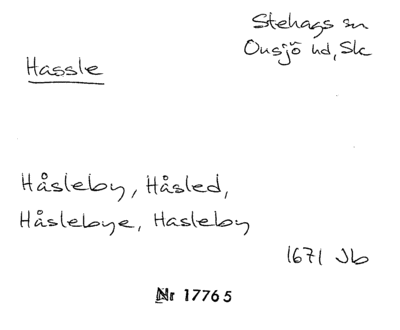 Stehags sn
Onsjö hd, Sk
Hassle
Håsleby, Håsled,
Håslebye, Hasleby
1671 Jb
Nr 17765